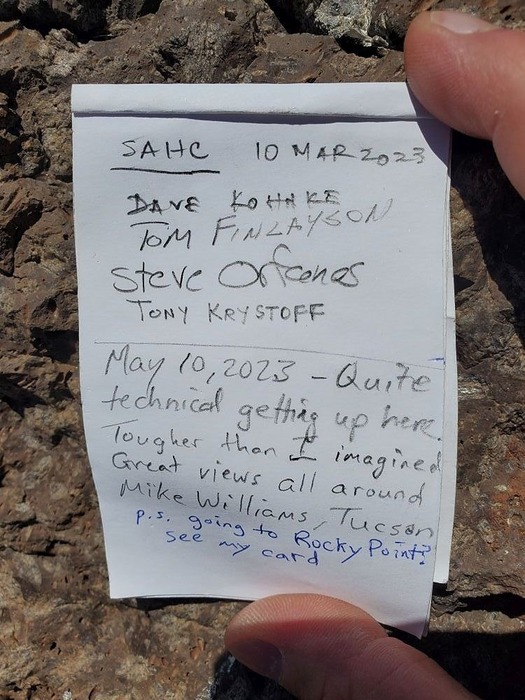 SAHC 10 MAR 2023
DAVE KOHNKE
TOM FINLAYSON
Steve Orfanos
TONY KRYSTOFF
May 10, 2023 - Quite
technical getting up here.
Tougher than I imagined
Great views all around
Mike Williams, Tucson
p.s. going to Rocky Point?
see my card